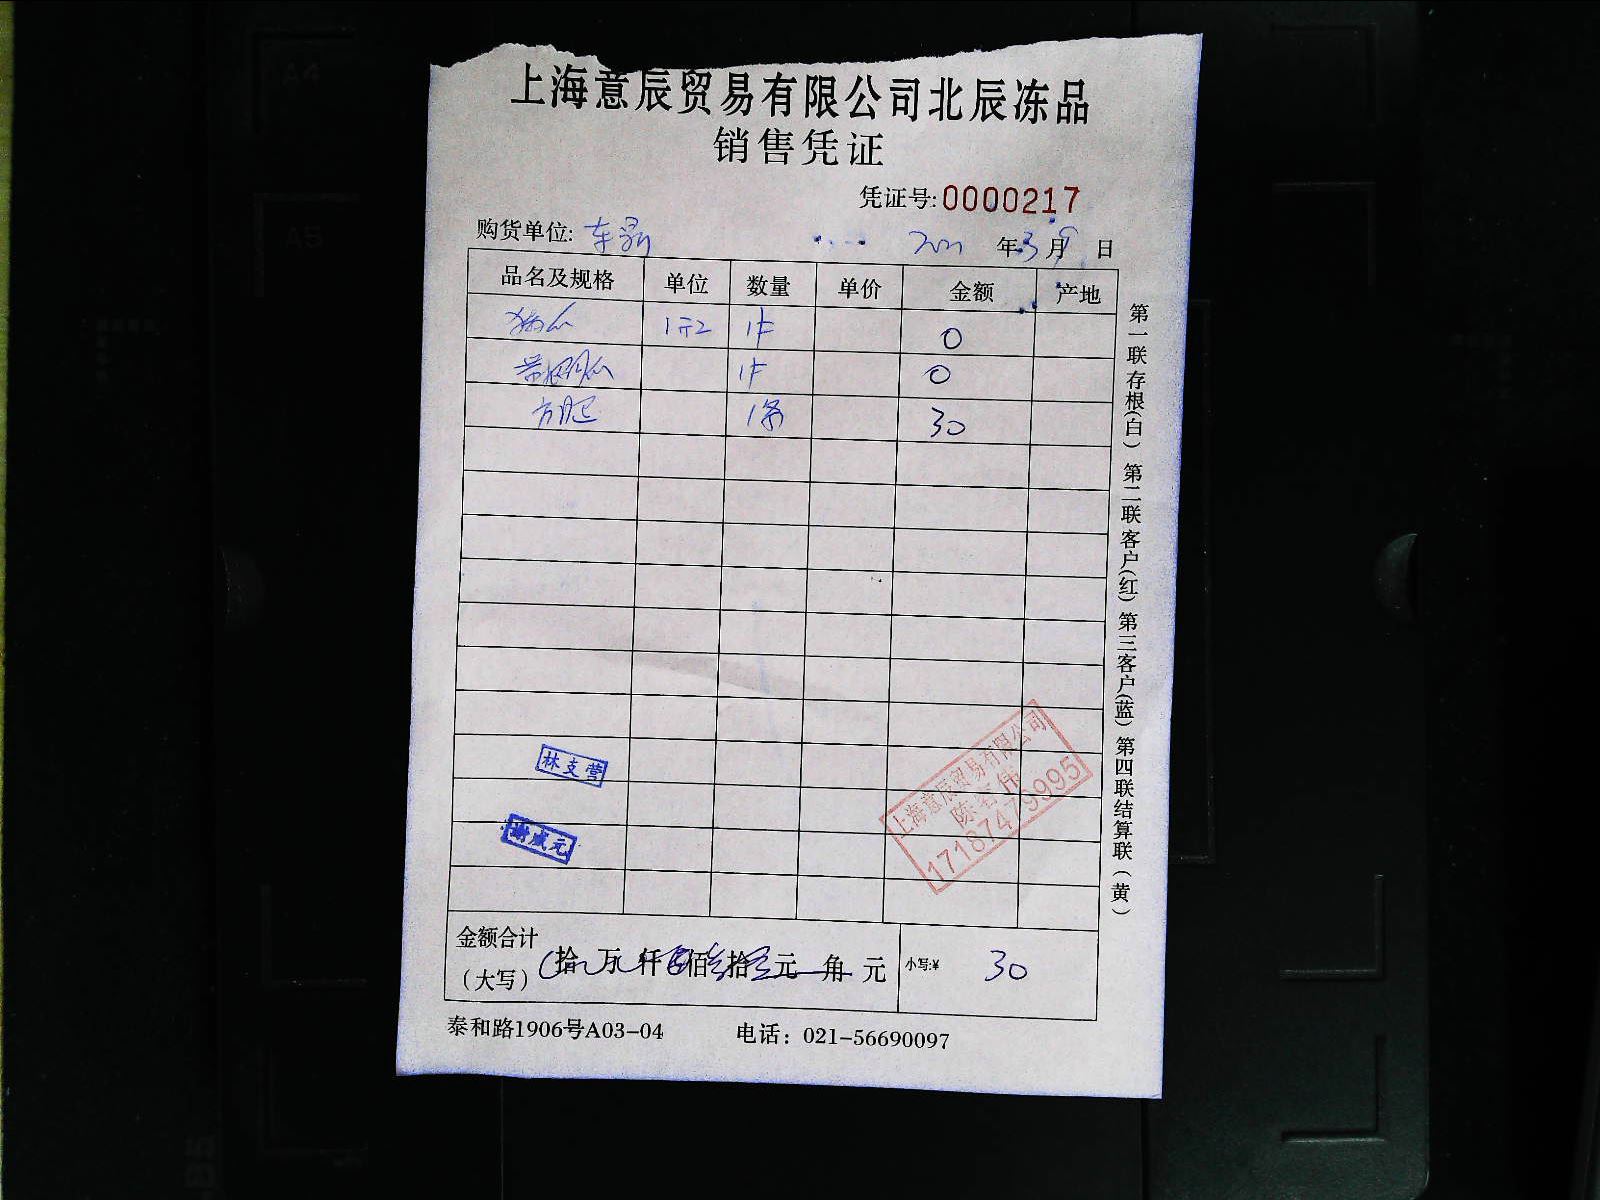 上海意辰贸易有限公司北辰冻品
销售凭证
凭证号:0000217
购货单位: 2021 年 3 月 9 日
品名及规格 单位 数量 单价 金额 产地
1件 0
1件 0
1条 30
林支营
谢成元
上海意辰贸易有限公司
陈 伟
17187479995
金额合计
(大写) 拾 万 仟 佰 拾 元 角 元 小写:¥ 30
泰和路1906号A03-04 电话: 021-56690097
第一联存根(白) 第二联客户(红) 第三客户(蓝) 第四联结算联(黄)
A4
A5
B5